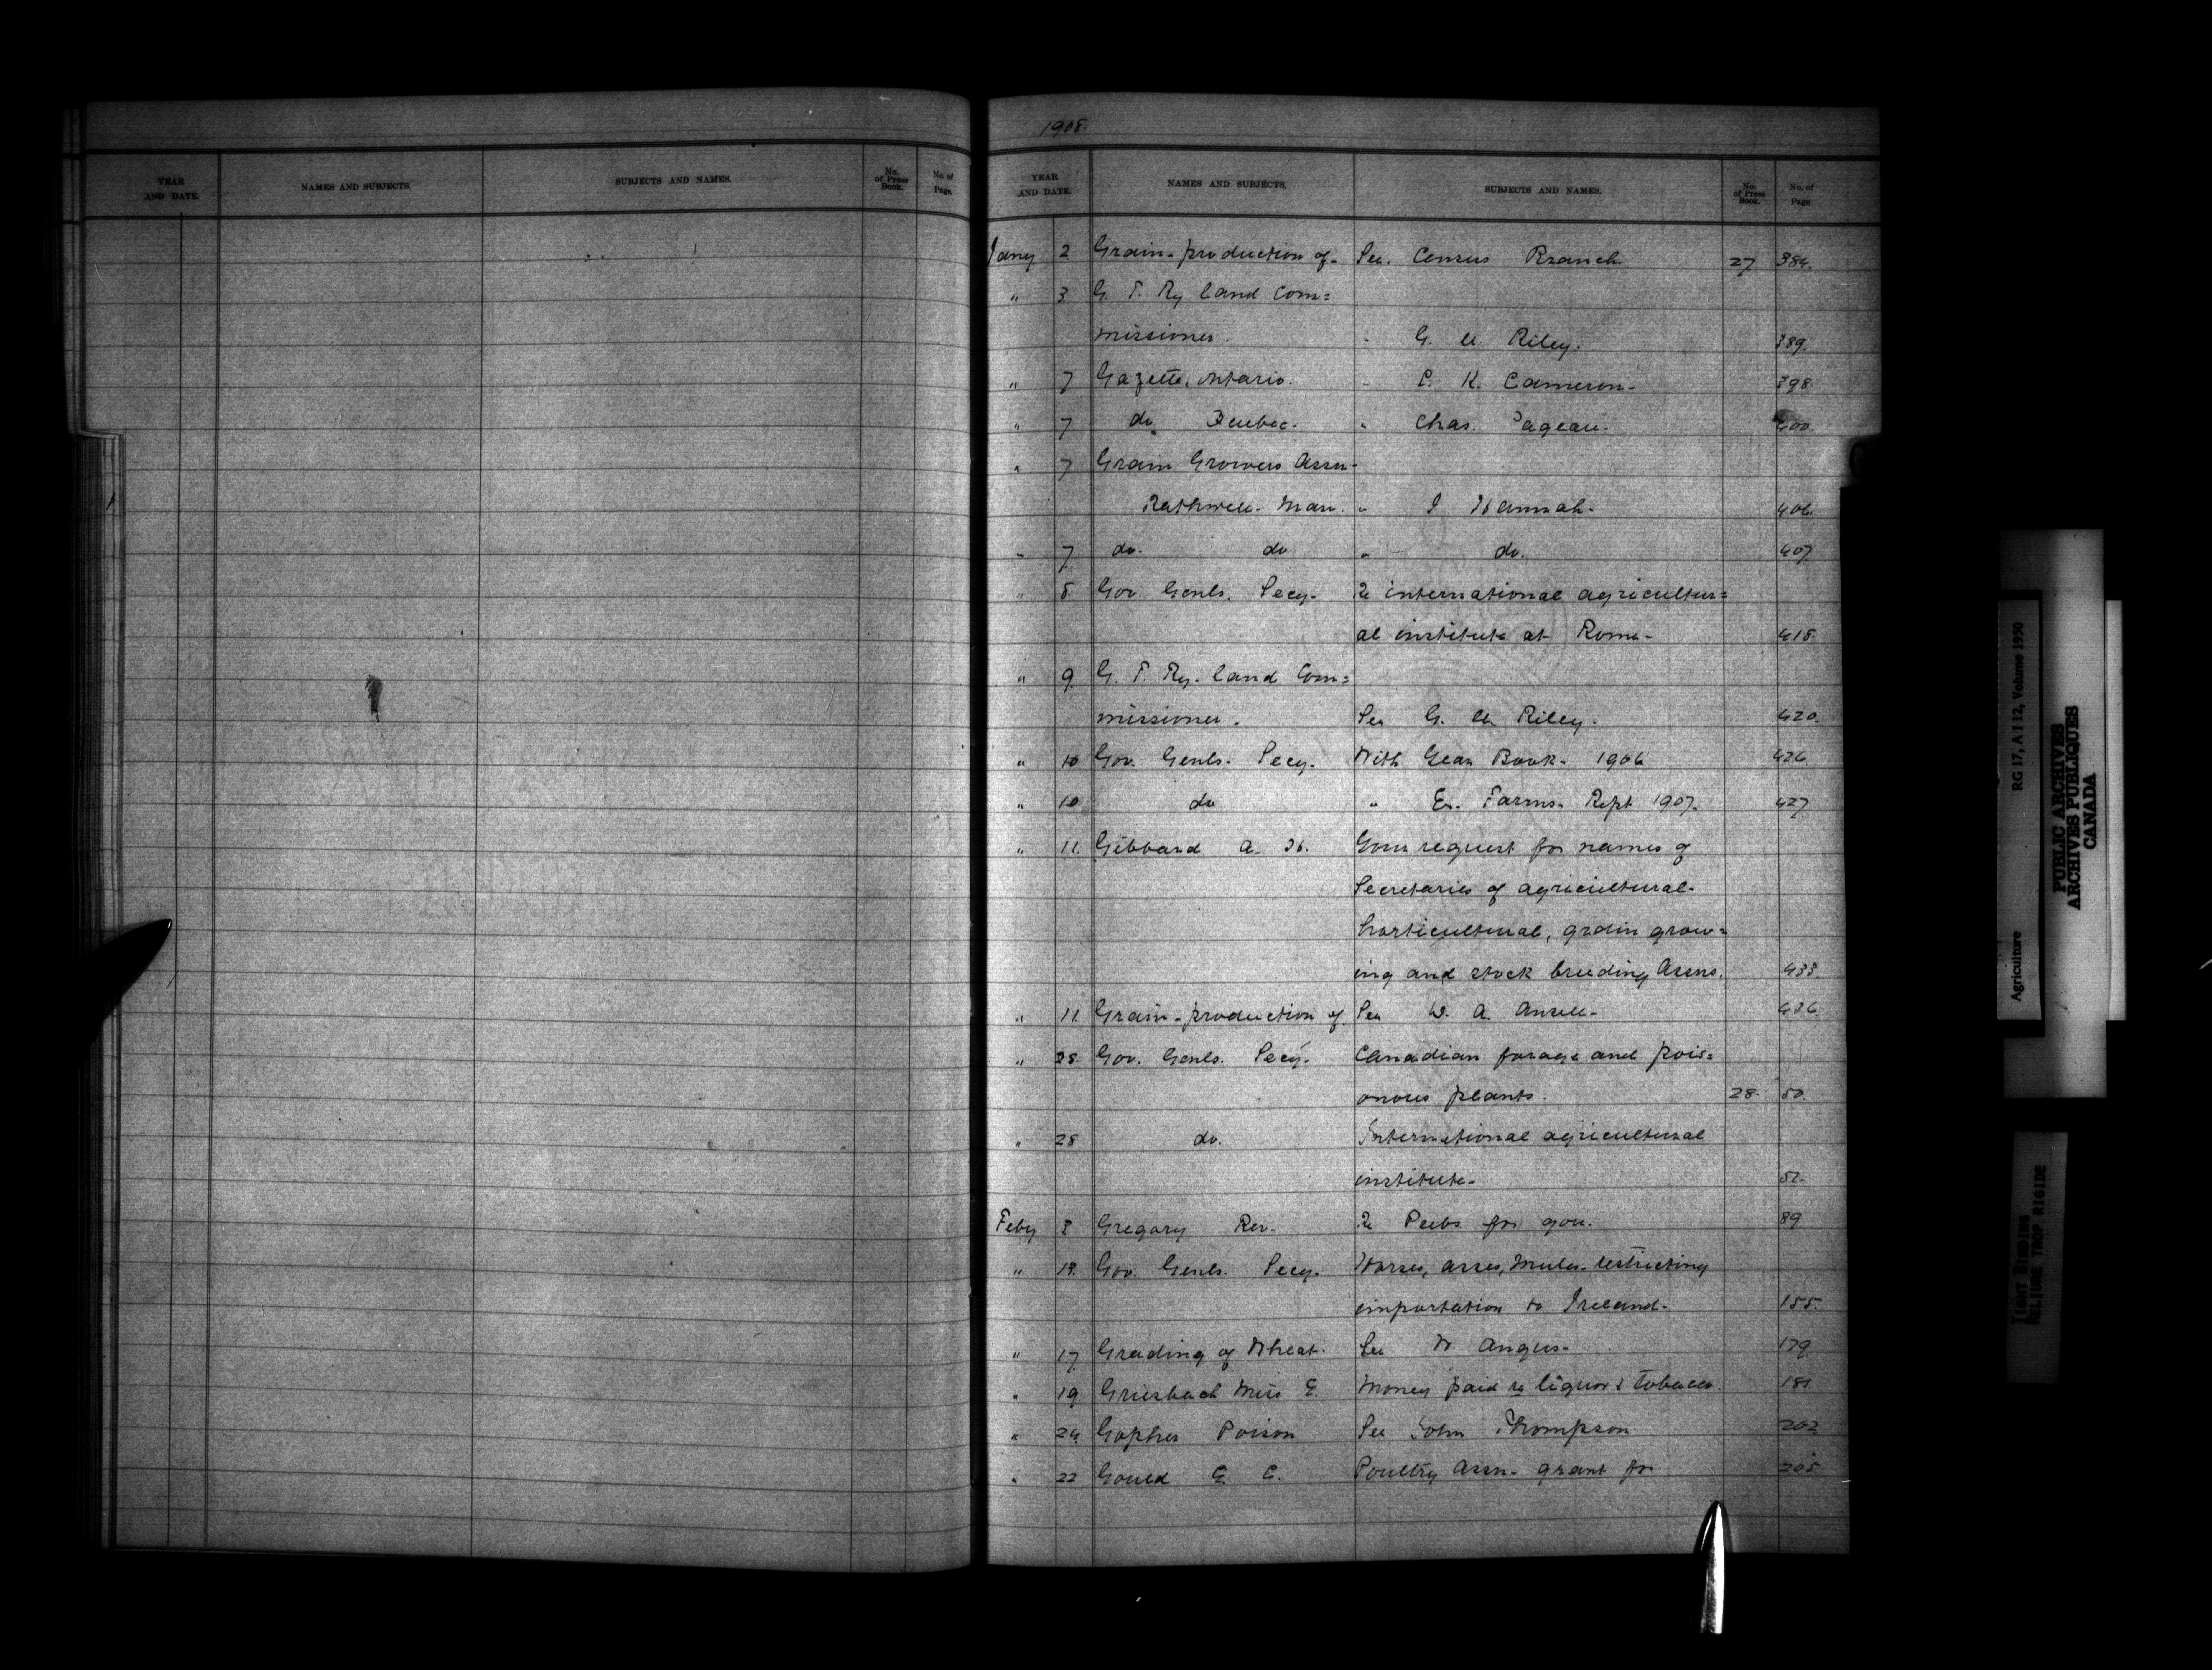 YEAR AND DATE. NAMES AND SUBJECTS. SUBJECTS AND NAMES. No. of Press Book. No. of Page.
1908.
YEAR AND DATE. NAMES AND SUBJECTS. SUBJECTS AND NAMES. No. of Press Book. No. of Page
Jany 2 Grain-production of- See. Census Branch. 27 384.
" 3 G. T. Ry Land Com=
missioner. " G. U. Riley. 389.
" 7 Gazette, Ontario. " C. K. Cameron- 398
" 7 do Quebec. " Chas. Pageau. 400.
" 7 Grain Growers Assn-
Rathwell. Man. " J Hannah- 406.
" 7 do. do " do. 407
" 8 Gov. Genls. Secy- Re international agricultur=
al institute at Rome- 418.
" 9 G. T. Ry. Land Com=
missioner. See G. U. Riley. 420.
" 10 Gov. Genls. Secy. With Year Book- 1906 426.
" 10 do " Ex. Farms. Rept 1907. 427
" 11. Gibbard A. H. Your request for names of
Secretaries of agricultural-
horticultural, grain grow=
ing and stock breeding Assns. 433.
" 11. Grain-production of. See W. A. Ansell- 436.
" 28. Gov. Genls. Secy. Canadian forage and pois=
onous plants. 28. 50.
" 28 do. International agricultural
institute- 52.
Feby 8 Gregory Rev. Re Pubs for you. 89
" 14. Gov. Genls. Secy. Horses, asses, mules-restricting
importation to Ireland- 155.
" 17 Grading of Wheat. See W. Angus- 179.
" 19 Griesbach Miss E. Money paid re liquor & tobacco. 181
" 24 Gopher Poison See John Thompson. 202
" 22 Gould E. C. Poultry Assn- grant for 205
Agriculture RG 17, A I 12, Volume 1990
PUBLIC ARCHIVES
ARCHIVES PUBLIQUES
CANADA
TIGHT BINDING
RELIURE TROP RIGIDE